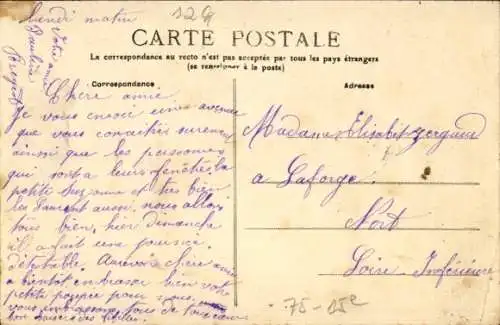 Lundi matin
12 G
CARTE POSTALE
La correspondance au recto n'est pas acceptée par tous les pays étrangers
(se renseigner à la poste)
Correspondance
Adresse
Votre amie
Pauline
Chère amie
Je vous envoie une avenue
que vous connaîtrez surement
ainsi que les personnes
qui sont a leurs fenêtre la
petite Suzanne et très bien
les Laurent aussi. nous allons
tous bien, hier dimanche
il a fait une journée
détestable. Aurevoir chère amie
a bientôt embrasser bien votre
petite poupée pour nous
vous embrassons tous de
bon baisers des
Madame Elisabeth
a Laforge
Nort
Loire Inférieure
75-15e